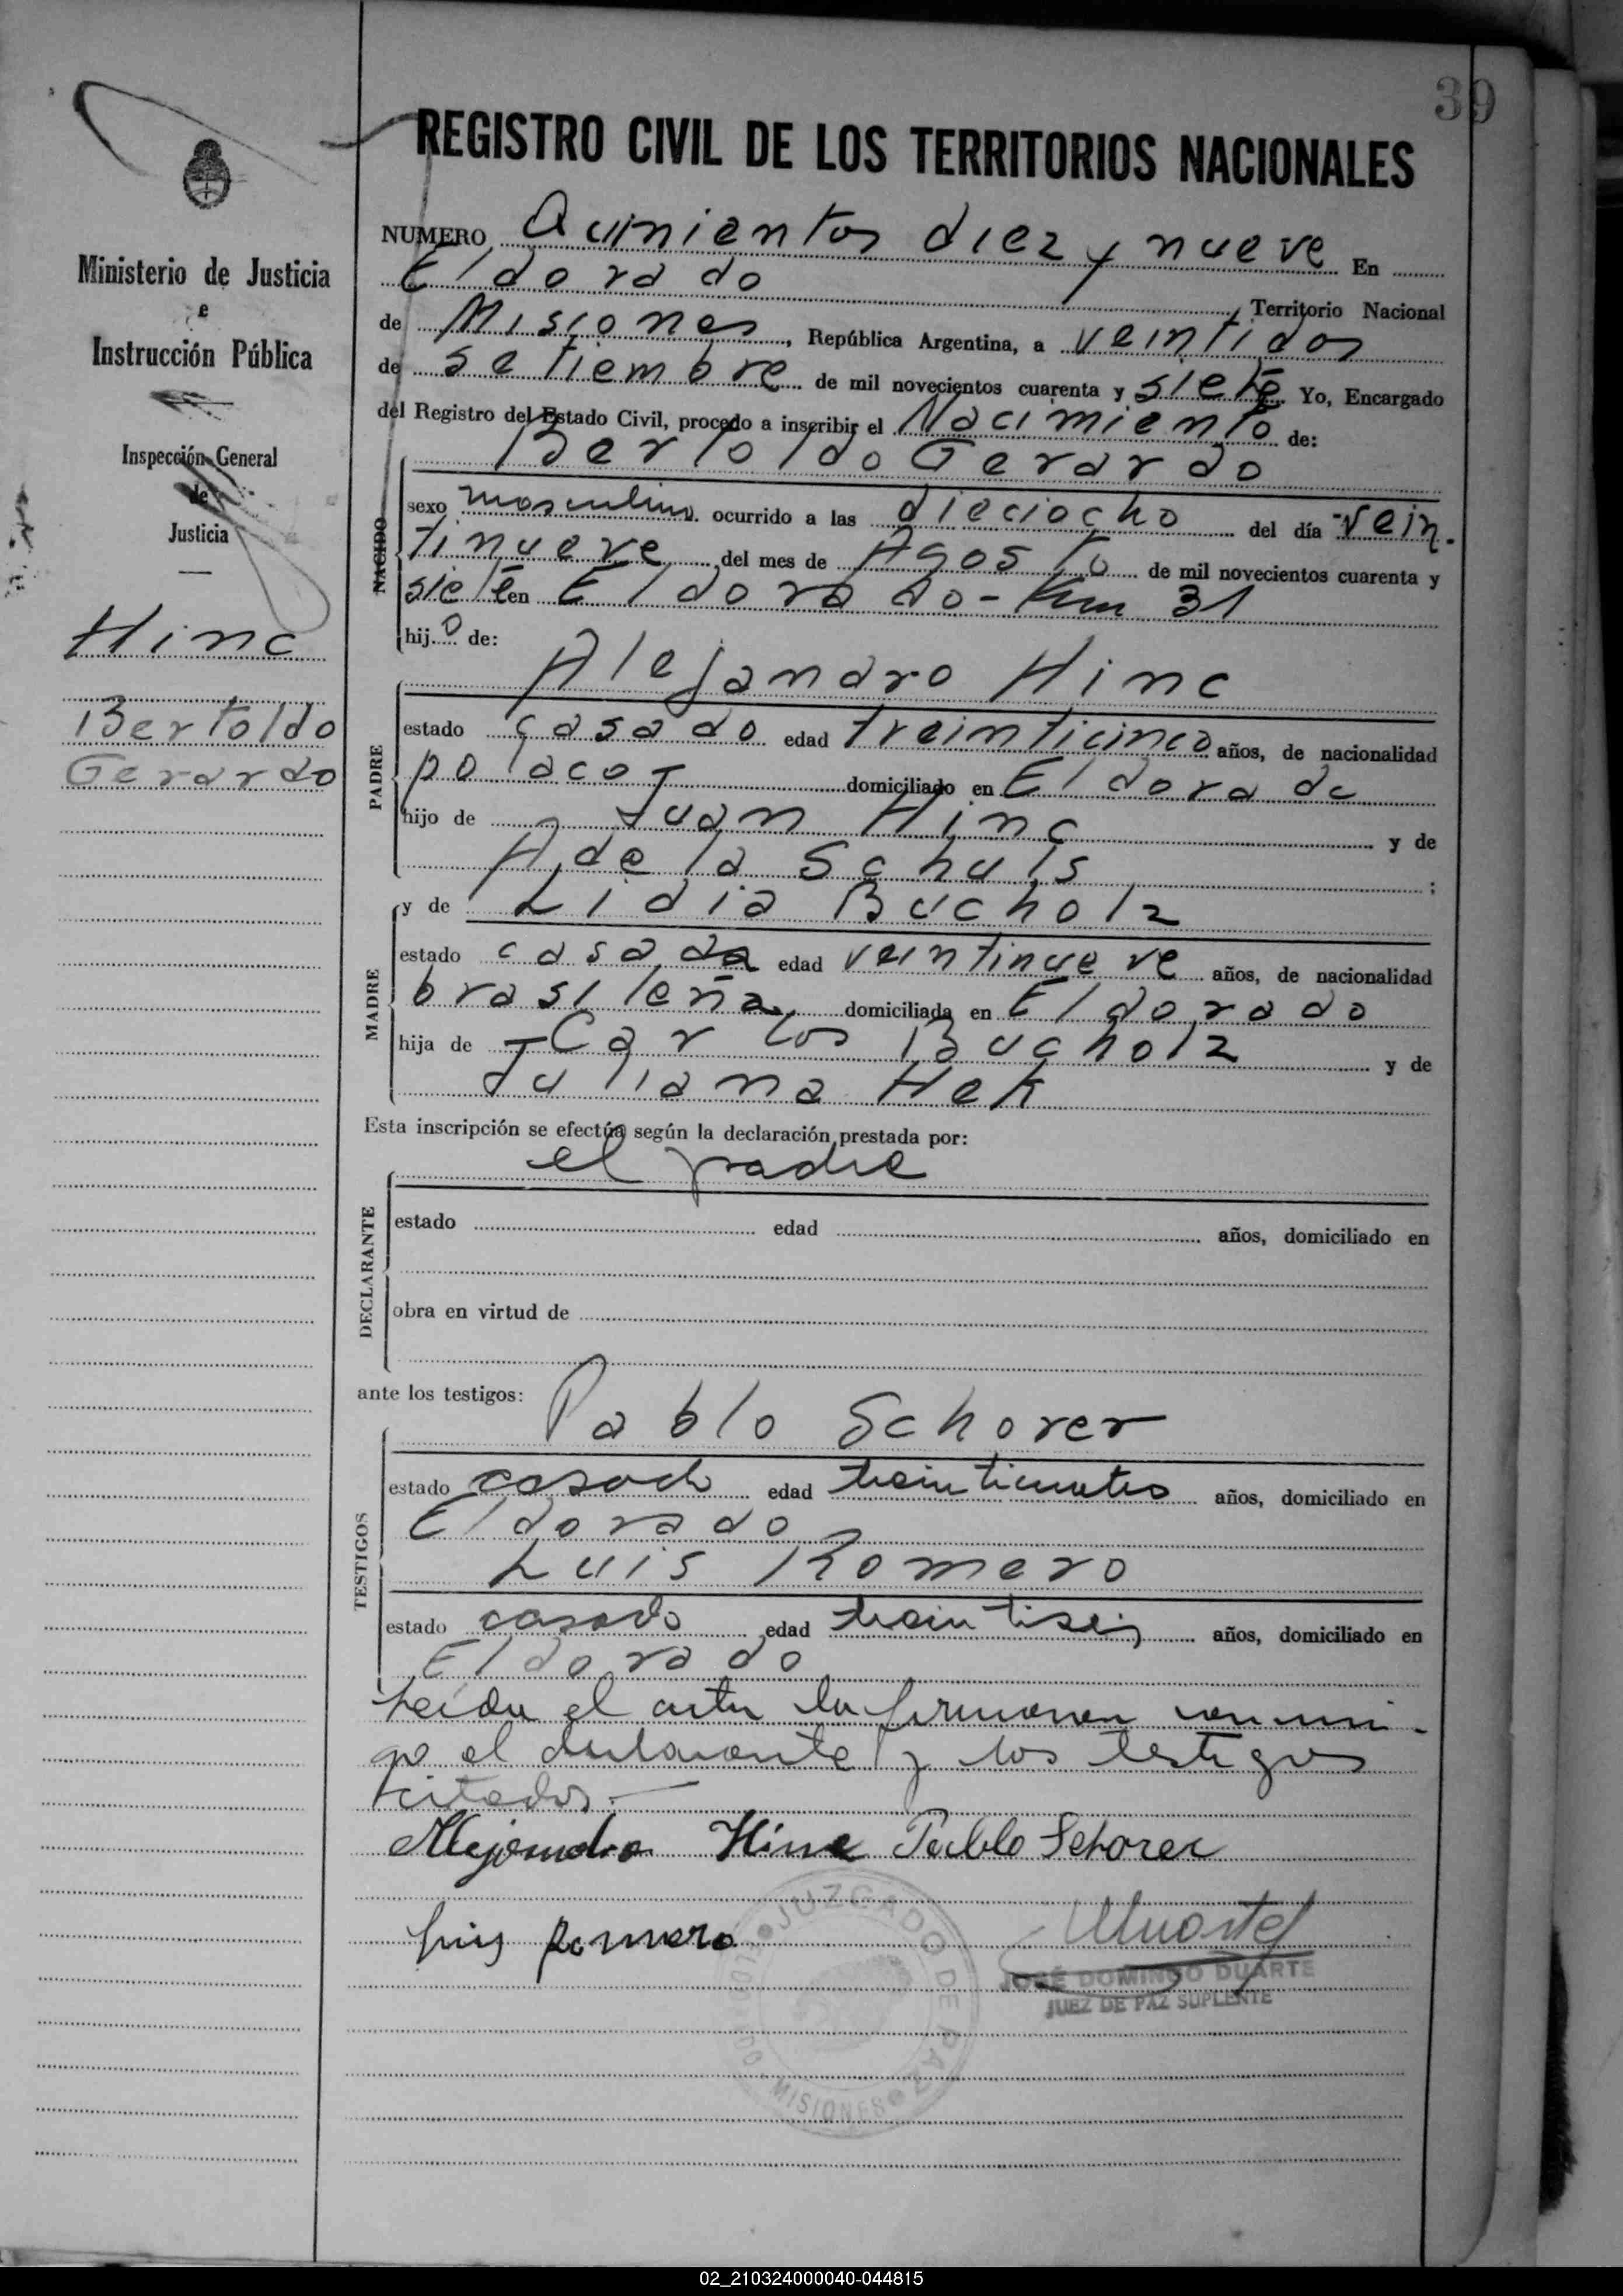 39
REGISTRO CIVIL DE LOS TERRITORIOS NACIONALES
Ministerio de Justicia
e
Instrucción Pública
Inspección General
de
Justicia
Hinc
Bertoldo
Gerardo
NUMERO Quinientos diez y nueve En
Eldorado Territorio Nacional
de Misiones, República Argentina, a veintidos
de setiembre de mil novecientos cuarenta y siete Yo, Encargado
del Registro del Estado Civil, procedo a inscribir el Nacimiento de:
Bertoldo Gerardo
NACIDO
sexo masculino ocurrido a las dieciocho del día vein-
tinueve del mes de Agosto de mil novecientos cuarenta y
siete en Eldorado - Km 31
hijo de:
Alejandro Hinc
PADRE
estado casado edad treinticinco años, de nacionalidad
polaco domiciliado en Eldorado
hijo de Juan Hinc y de
Adela Schuls ;
MADRE
y de Lidia Bucholz
estado casada edad veintinueve años, de nacionalidad
brasileña domiciliada en Eldorado
hija de Carlos Bucholz y de
Juliana Hek
Esta inscripción se efectúa según la declaración prestada por:
el padre
DECLARANTE
estado edad años, domiciliado en
obra en virtud de
ante los testigos:
Pablo Schorer
TESTIGOS
estado casado edad años, domiciliado en
Eldorado
Luis Romero
estado casado edad treintiseis años, domiciliado en
Eldorado
Leida el acta la firmaron conmi-
go el declarante y los testigos
citados.-
Alejandro Hinc Pablo Schorer
Luis Romero
JOSÉ DOMINGO DUARTE
JUEZ DE PAZ SUPLENTE
JUZGADO DE PAZ
MISIONES
02_210324000040-044815